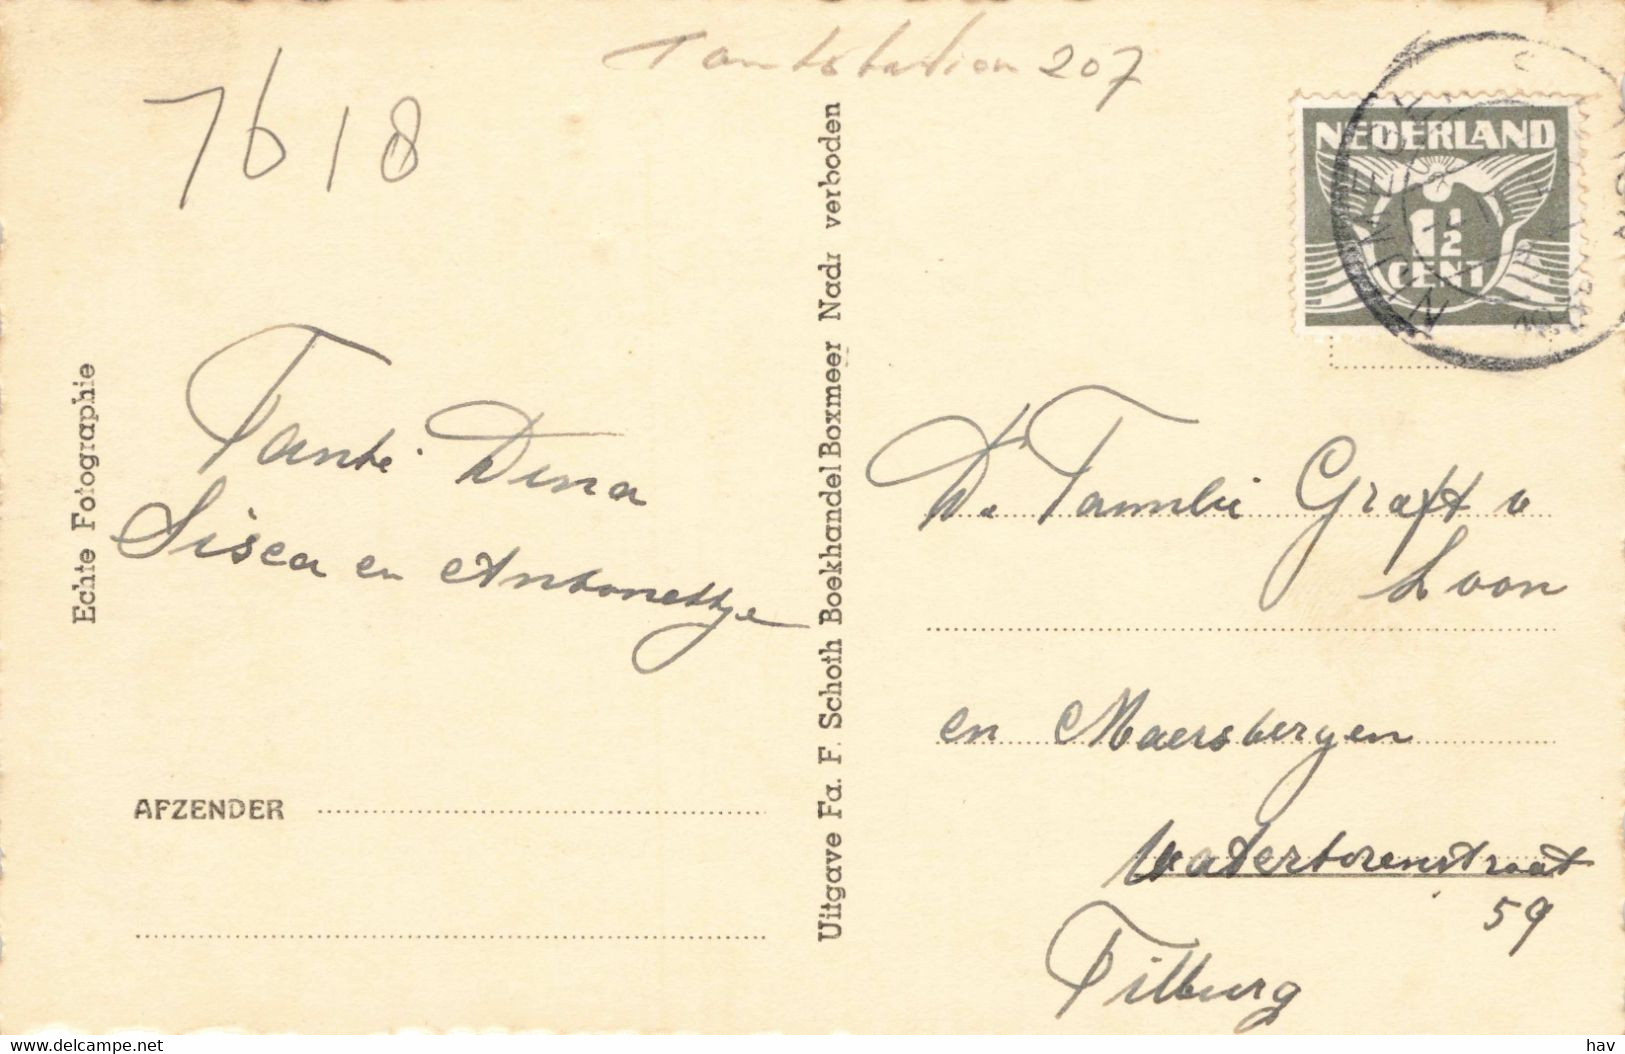 Tankstation 207
7618
NEDERLAND
1½
CENT
NIJMEGEN
Echte Fotographie
Uitgave Fa. F. Schoth Boekhandel Boxmeer Nadr verboden
Tante Dina
Sisca en Antonettje
AFZENDER
De Familie Graft v
Loon
en Maersbergen
Watertorenstraat
59
Tilburg
www.delcampe.net
hav